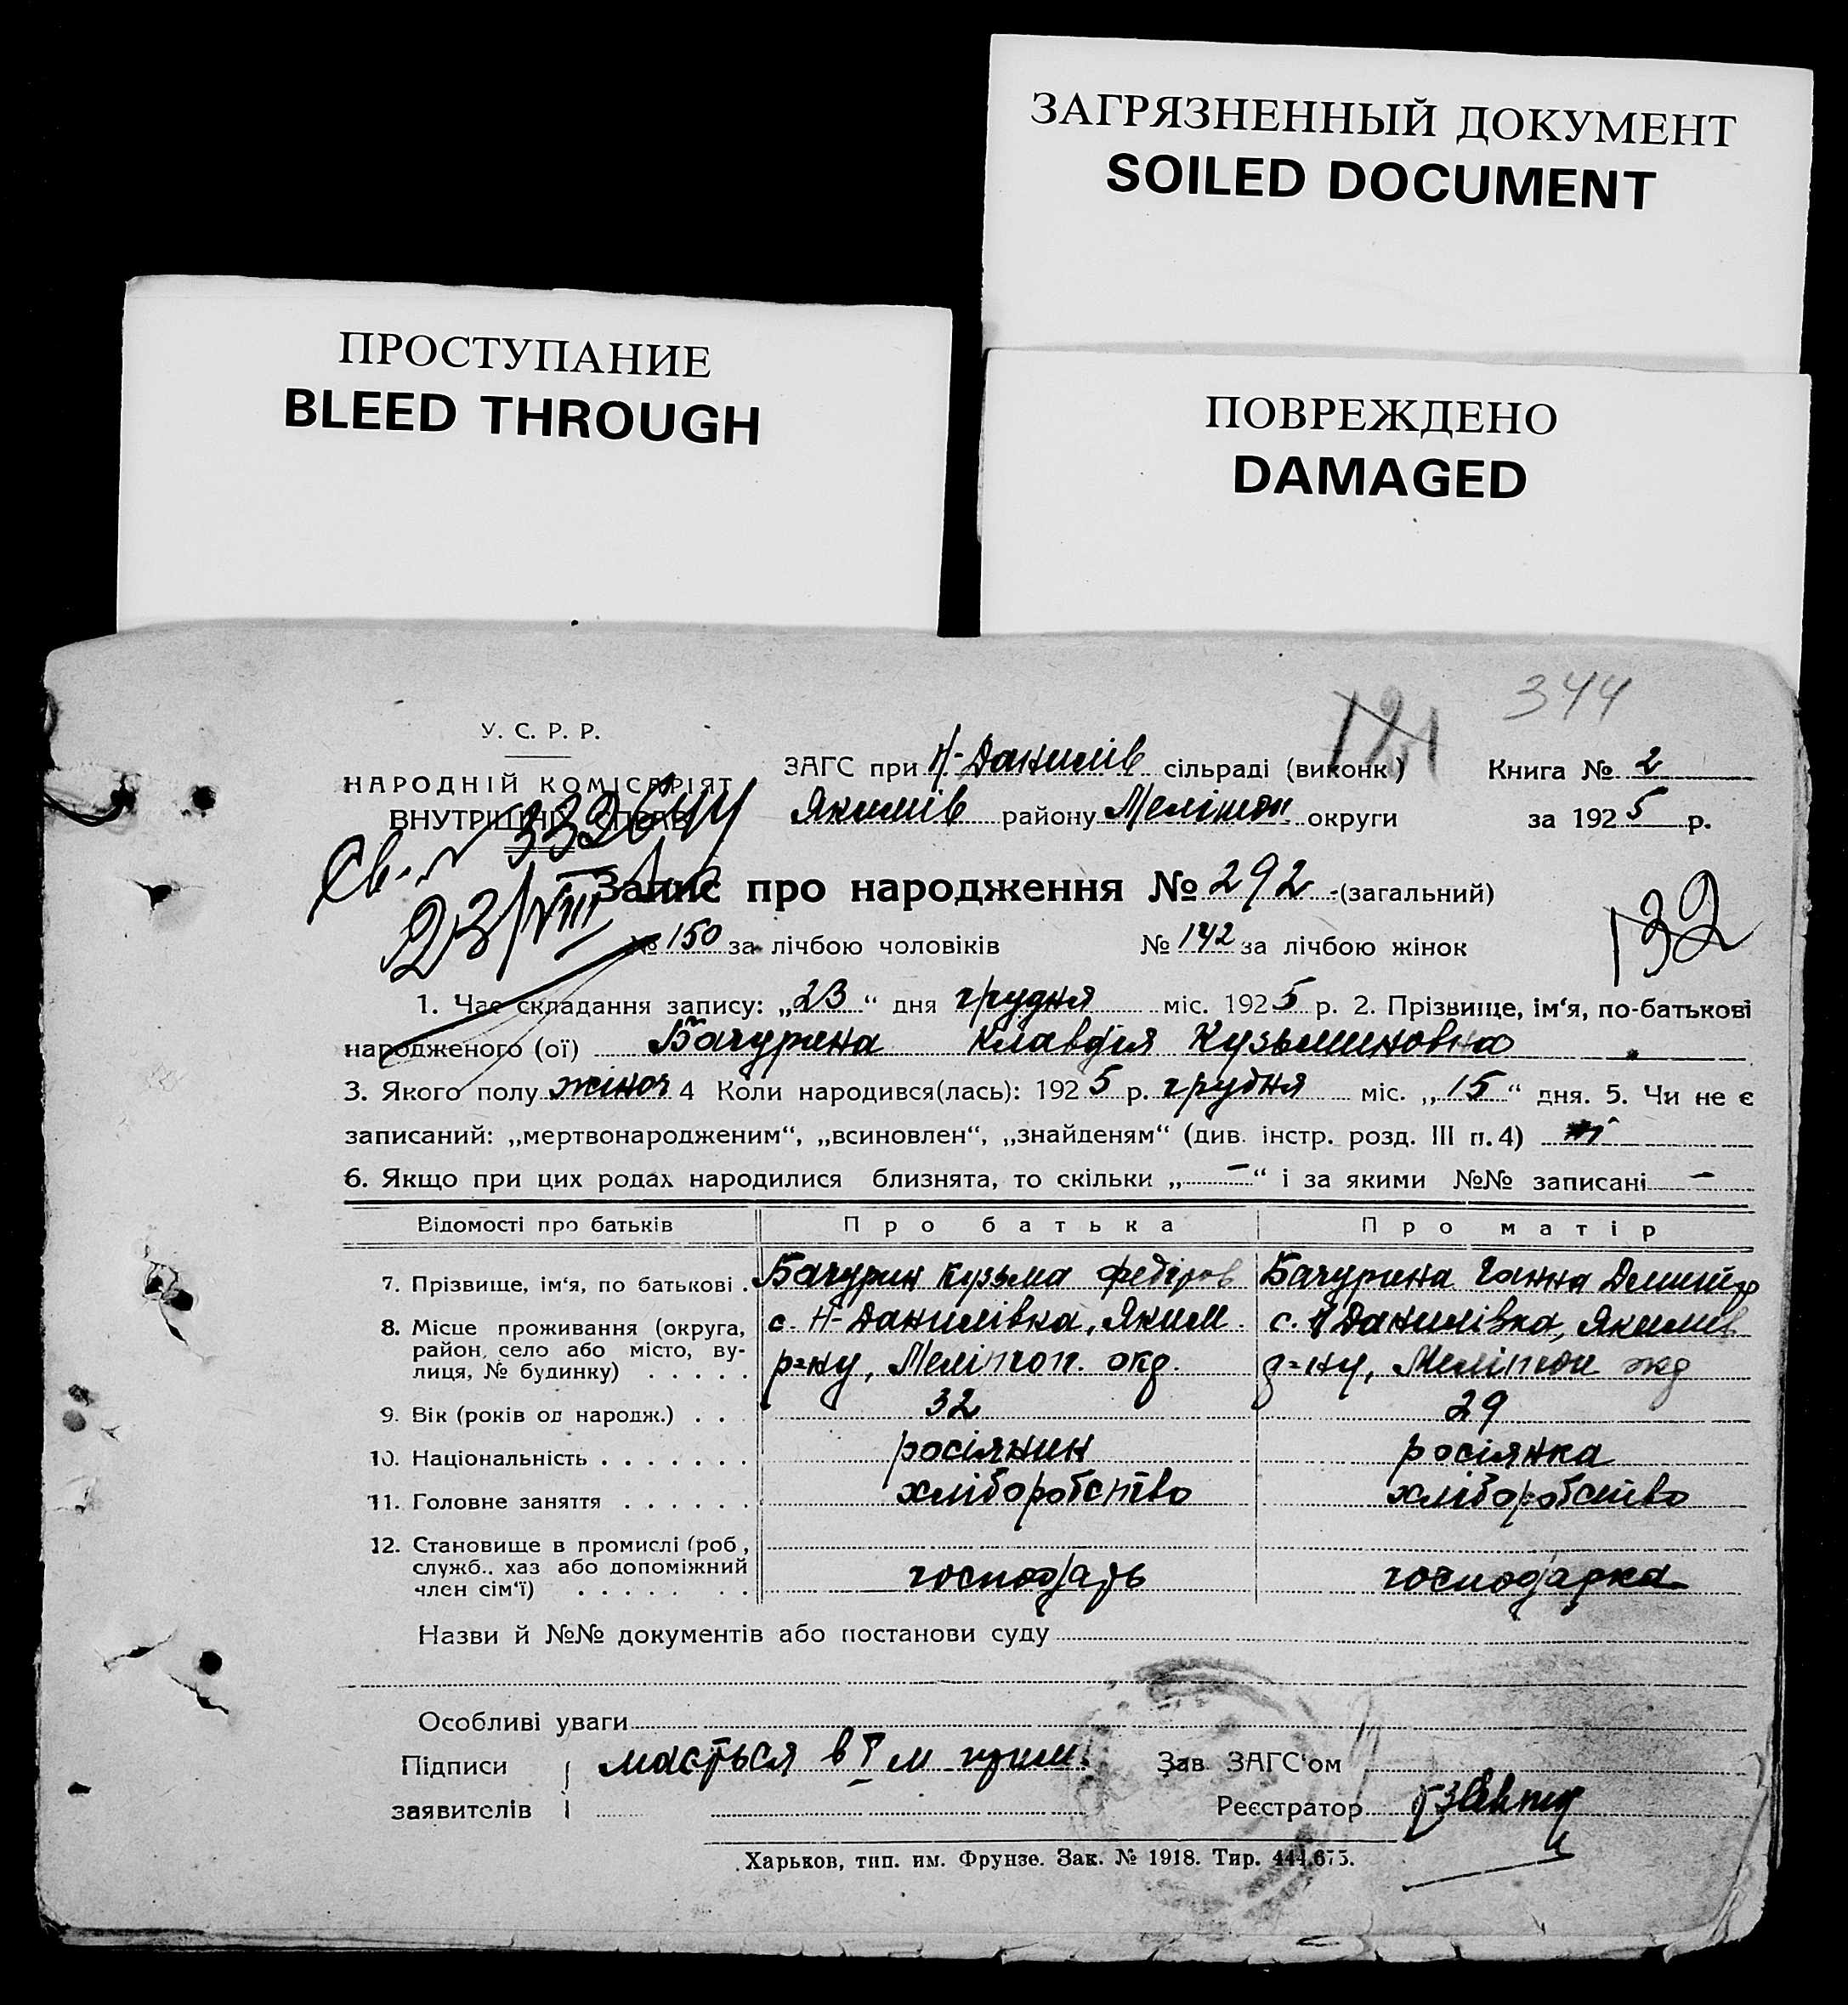 ЗАГРЯЗНЕННЫЙ ДОКУМЕНТ
SOILED DOCUMENT
ПРОСТУПАНИЕ
BLEED THROUGH
ПОВРЕЖДЕНО
DAMAGED
344
121
У. С. Р. Р.
НАРОДНІЙ КОМІСАРІЯТ
ВНУТРІШНІХ СПРАВ
ЗАГС при Н-Данилів сільраді (виконк.) Книга № 2
Якимів району Мелітоп. округи за 1925 р.
Св-
23/VIII
Запис про народження № 292 (загальний)
132
№ 150 за лічбою чоловіків № 142 за лічбою жінок
1. Час складання запису: „23“ дня грудня міс. 1925 р. 2. Прізвище, ім‘я, по-батькові
народженого (ої) Бачурина Клавдія Кузьминовна
3. Якого полу жіноч 4 Коли народився(лась): 1925 р. грудня міс. „15“ дня. 5. Чи не є
записаний: „мертвонародженим“, „всиновлен“, „знайденям“ (див. інстр. розд. III п. 4) ні
6. Якщо при цих родах народилися близнята, то скільки „—“ і за якими №№ записані —
Відомості про батьків Про батька Про матір
7. Прізвище, ім‘я, по батькові . Бачурин Кузьма Федіров Бачурина Ганна Демит
8. Місце проживання (округа, район, село або місто, ву-
лиця, № будинку) . . . . . с. Н-Данилівка, Яким. р-ну, Мелітоп. окр. с. Н Данилівка, Якимів р-ну, Мелітоп окр
9. Вік (років од народж.) . . . 32 29
10. Національність . . . . . . . росіянин росіянка
11. Головне заняття . . . . . . хліборобство хліборобство
12. Становище в промислі (роб.,
служб., хаз або допоміжний
член сім‘ї) . . . . . . . господарь господарка
Назви й №№ документів або постанови суду
Особливі уваги
Підписи мається в I м прим. Зав ЗАГС‘ом
заявителів Реєстратор
Харьков, тип. им. Фрунзе. Зак. № 1918. Тир. 444.675.